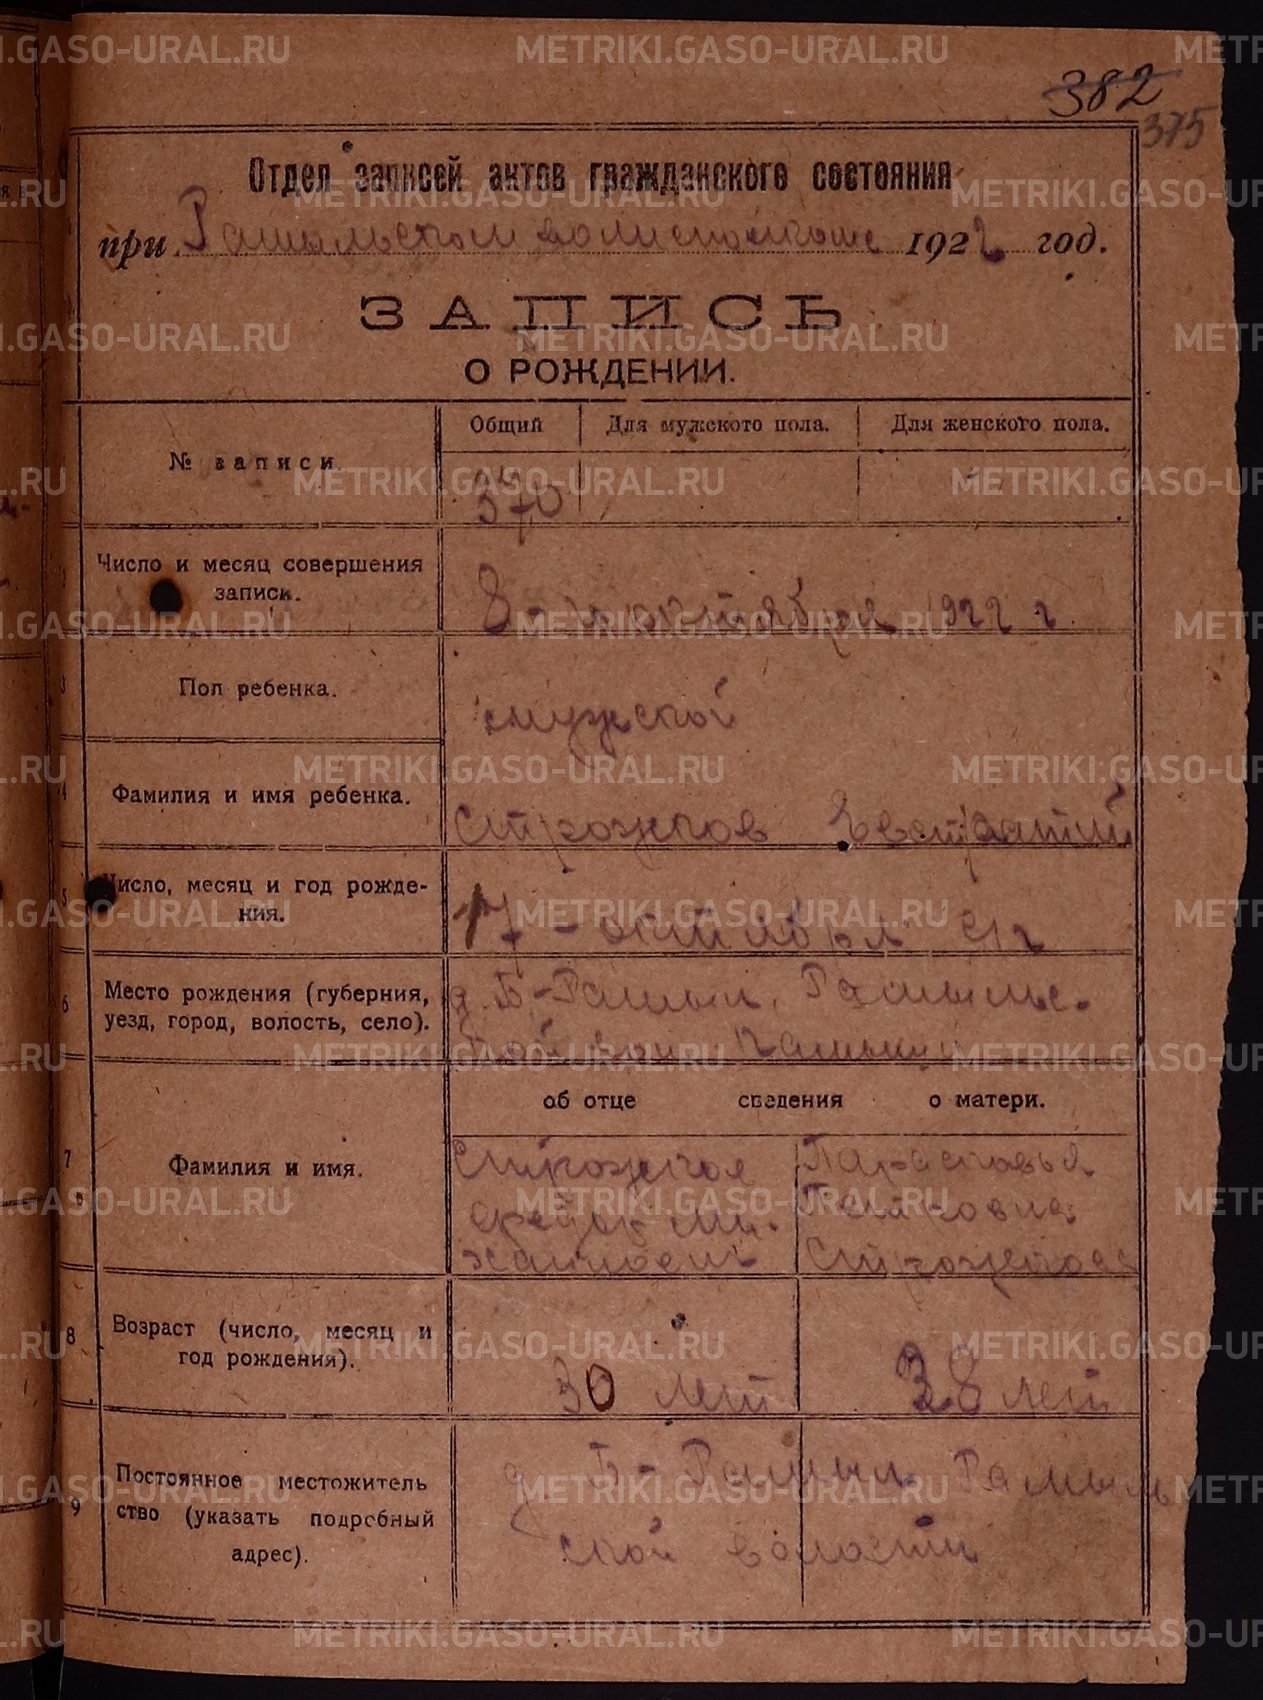 382
375
Отдел записей актов гражданского состояния
при Рамыльском волисполкоме 1922 год.
ЗАПИСЬ
О РОЖДЕНИИ.
№ записи
Общий
Для мужского пола.
Для женского пола.
370
Число и месяц совершения
записи.
8-октября 1922 г.
3
Пол ребенка.
мужской
4
Фамилия и имя ребенка.
Строжков Евстратий
5
Число, месяц и год рожде-
ния.
17-октября
6
Место рождения (губерния,
уезд, город, волость, село).
д. Б-Рамыл. Рамыльс-
кой вол
об отце сведения о матери.
7
Фамилия и имя.
Парасковья
Петровна
8
Возраст (число, месяц и
год рождения).
30 лет
38 лет
9
Постоянное местожитель
ство (указать подробный
адрес).
д Б-Рамыл. Рамыль
ской волости
METRIKI.GASO-URAL.RU